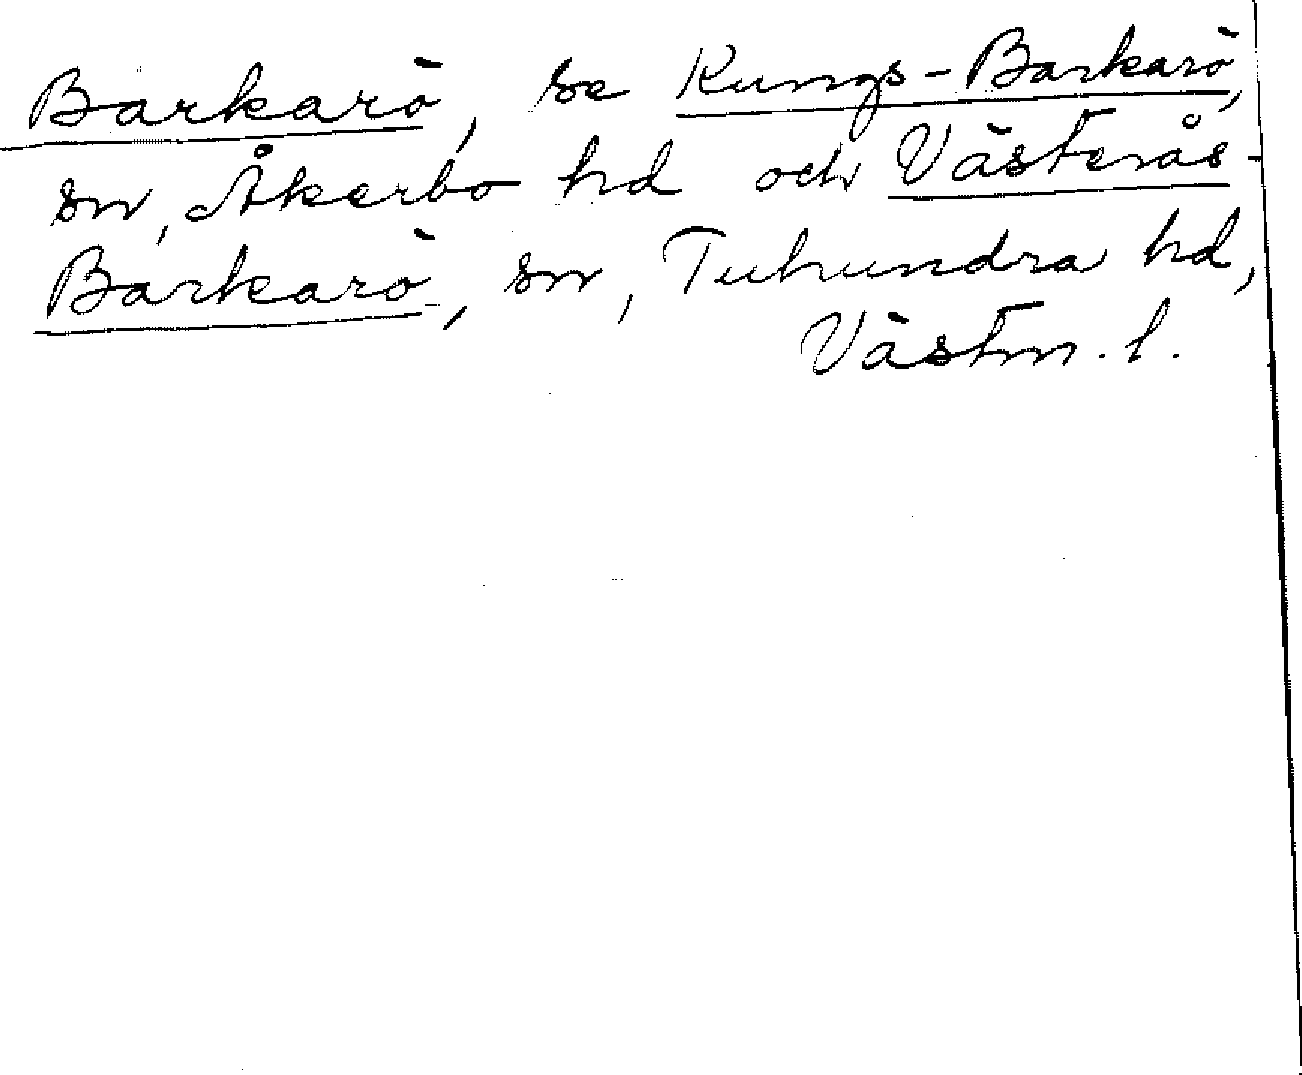 Barkarö, se Kungs-Barkarö,
sn, Åkerbo hd och Västerås-
Barkarö, sn, Tuhundra hd,
Västm. l.